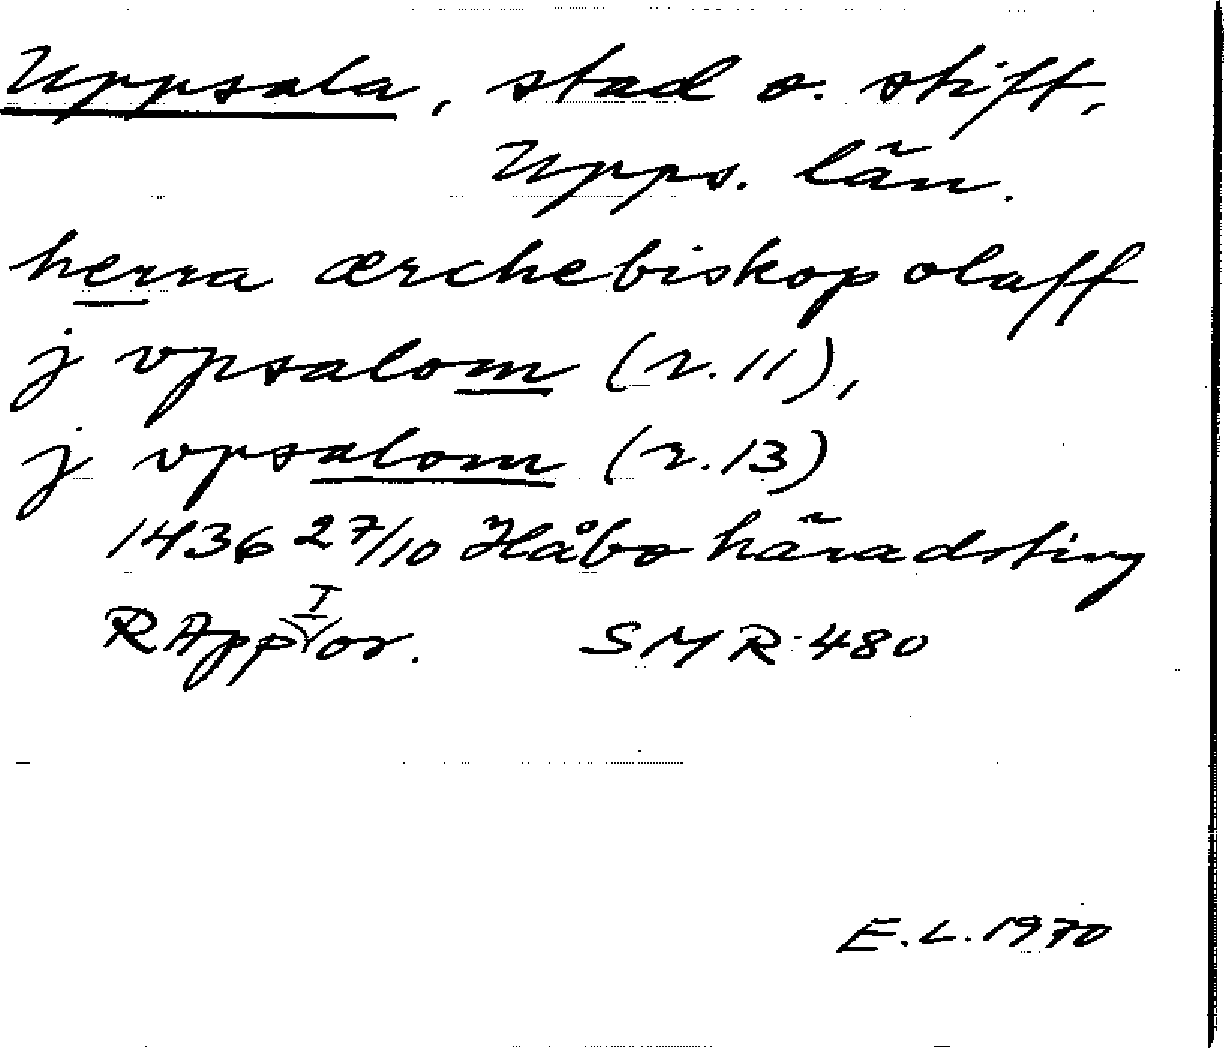 Uppsala, stad o. stift,
Upps. län.
herra ærchebiskop olaff
j vpsalom (r. 11),
j vpsalom (r. 13)
1436 27/10 Håbo häradsting
RApp I or. SMR 480
E.L. 1970